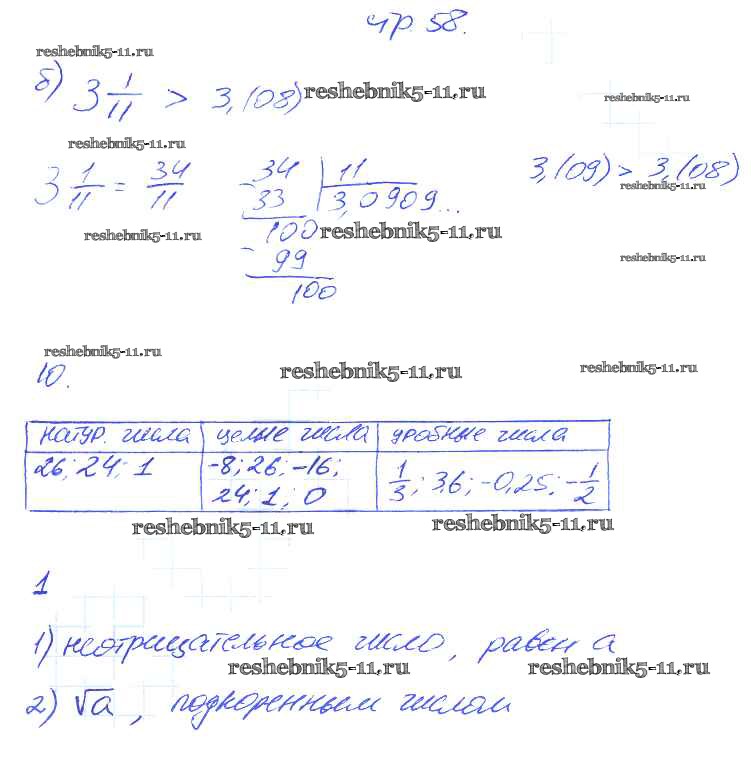 стр 58.
reshebnik5-11.ru
б) 3 1/11 > 3,(08) reshebnik5-11.ru
reshebnik5-11.ru
reshebnik5-11.ru
3 1/11 = 34/11
34 | 11
- 33 | 3,0909...
100
- 99
100
3,(09) > 3,(08)
reshebnik5-11.ru
reshebnik5-11.ru
reshebnik5-11.ru
reshebnik5-11.ru
reshebnik5-11.ru
reshebnik5-11.ru
reshebnik5-11.ru
10.
натур. числа | целые числа | дробные числа
26; 24; 1 | -8; 26; -16; | 1/3; 3,6; -0,25; -1/2
24; 1; 0
reshebnik5-11.ru
reshebnik5-11.ru
1
1) неотрицательное число, равен a
reshebnik5-11.ru
reshebnik5-11.ru
2) √a, подкоренным числом